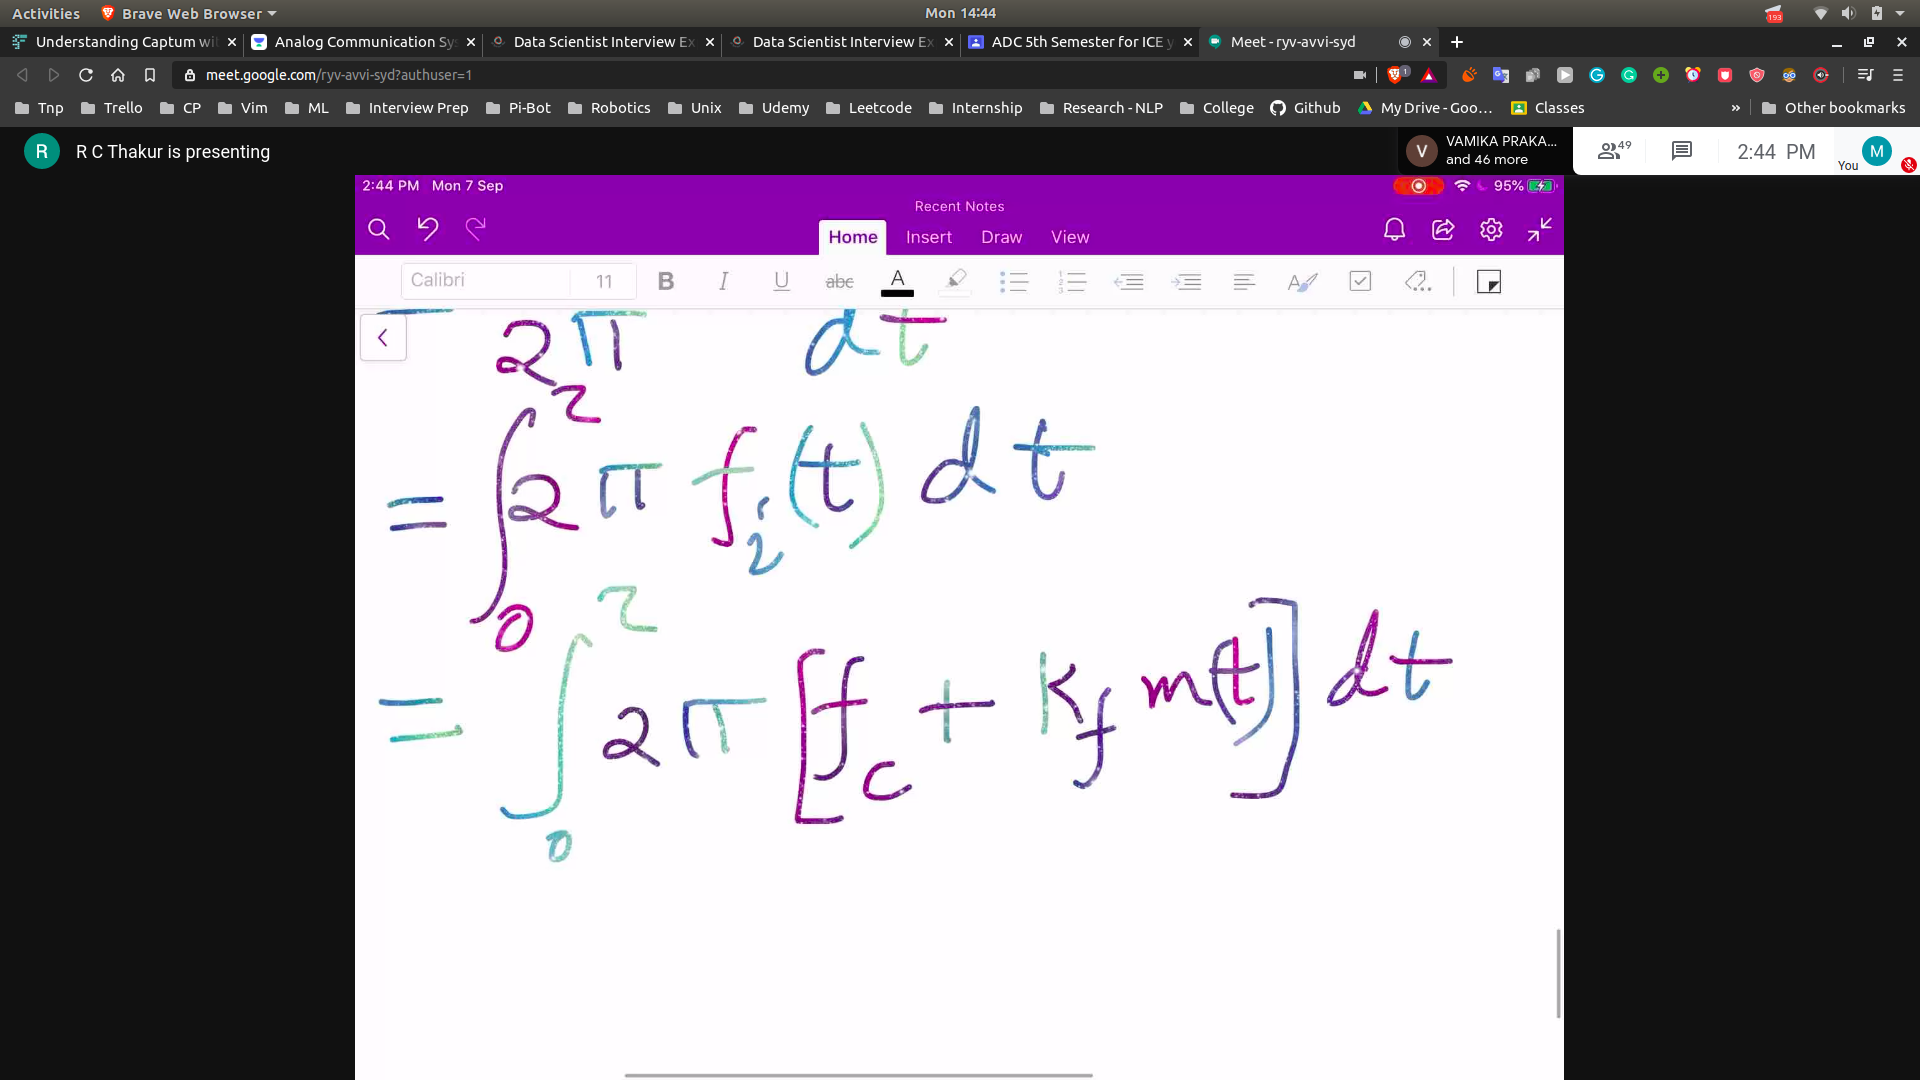 Activities Brave Web Browser Mon 14:44 193
Understanding Captum wi Analog Communication Sy Data Scientist Interview Ex Data Scientist Interview Ex ADC 5th Semester for ICE y Meet - ryv-avvi-syd
meet.google.com/ryv-avvi-syd?authuser=1 1
Tnp Trello CP Vim ML Interview Prep Pi-Bot Robotics Unix Udemy Leetcode Internship Research - NLP College Github My Drive - Goo... Classes » Other bookmarks
R R C Thakur is presenting V VAMIKA PRAKA... and 46 more 49 2:44 PM You M
2:44 PM Mon 7 Sep 95%
Recent Notes
Home Insert Draw View
Calibri 11 B I U abc A
2π dt
= ∫₀² 2π fᵢ(t) dt
= ∫₀² 2π [f_c + k_f m(t)] dt